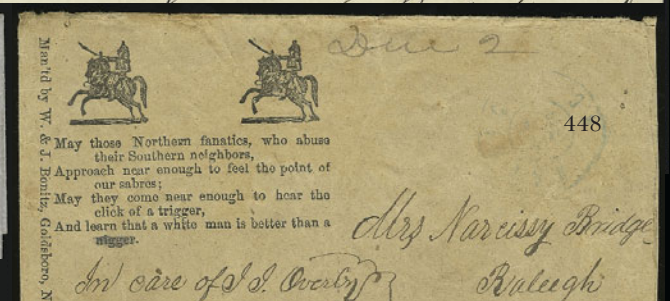 Due 2
448
Man'td by W. & J. Bonitz, Goldsboro, N
May those Northern fanatics, who abuse
their Southern neighbors,
Approach near enough to feel the point of
our sabres;
May they come near enough to hear the
click of a trigger,
And learn that a white man is better than a
nigger.
Mrs Narcissy Bridge
In care of J. J. Overby
Raleigh